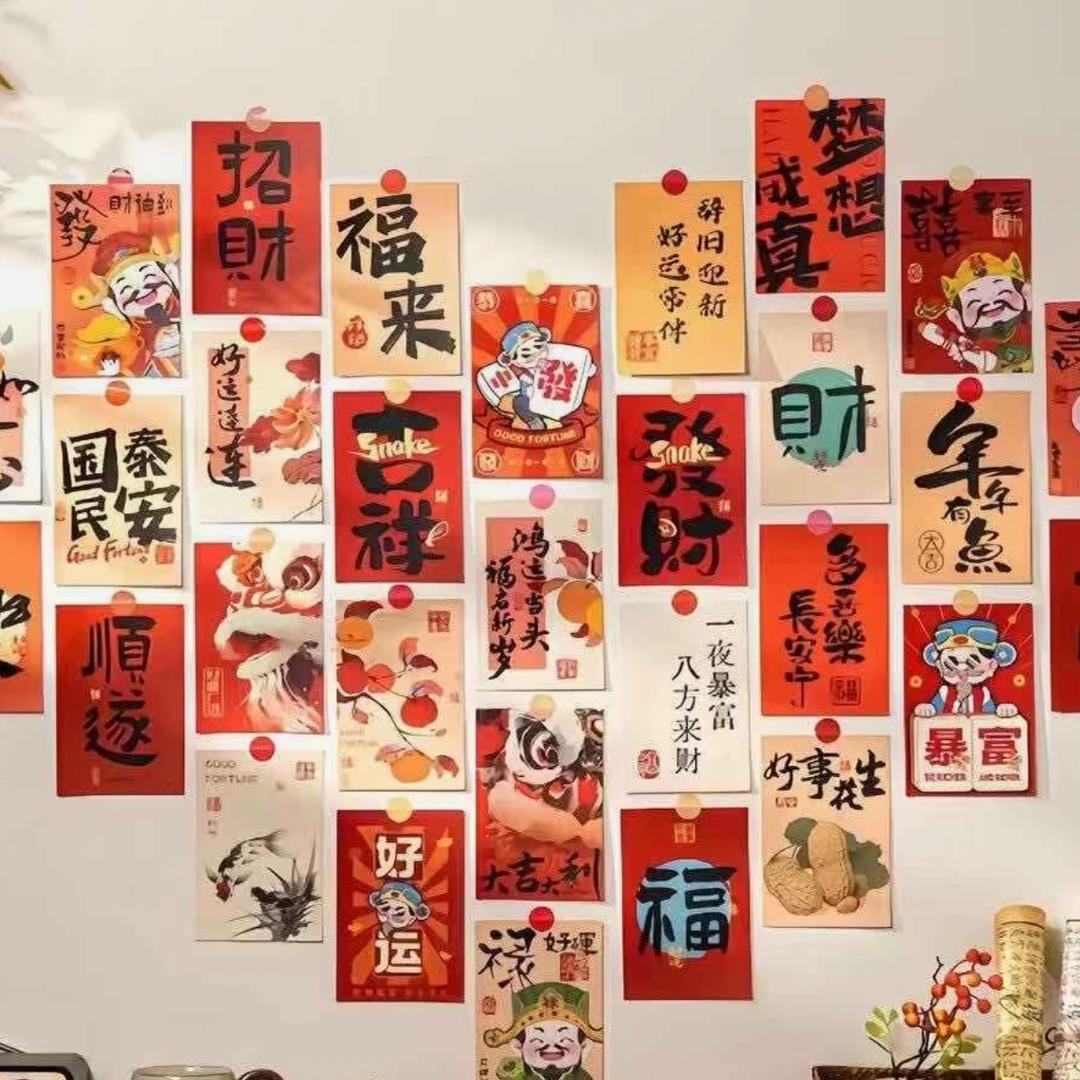 發
財神到
招
財
福
来
好运连连
国泰
民安
Good Fortune
順
遂
吉
Snake
祥
GOOD
FORTUNE
好
运
發
GOOD FORTUNE
鸿运当头
福启新岁
大吉大利
禄
好運
辞旧迎新
好运常伴
發
Snake
財
一夜暴富
八方来财
福
梦想
成真
財
多喜樂
長安中
好事花生
囍
年年
有魚
大吉
暴富